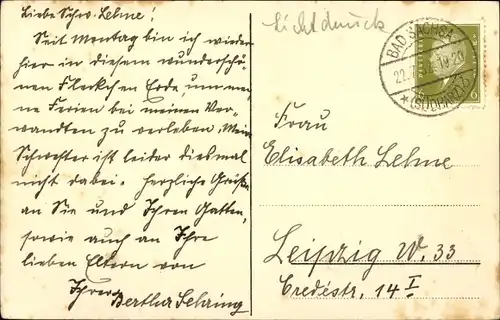 Liebe Schw. Lehme!
Seit Montag bin ich wieder
hier in diesem wunderschö-
nen Fleckchen Erde, um mei-
ne Ferien bei meinen Ver-
wandten zu verleben. Meine
Schwester ist leider diesmal
nicht dabei. Herzliche Grüße
an Sie und Ihren Gatten,
sowie auch an Ihre
lieben Eltern von
Ihrer Bertha Sehring
Lichtdruck
BAD SACHSA
22. 19-20
(SÜDHARZ)
Frau
Elisabeth Lehme
Leipzig W. 33
Credéstr. 14 I